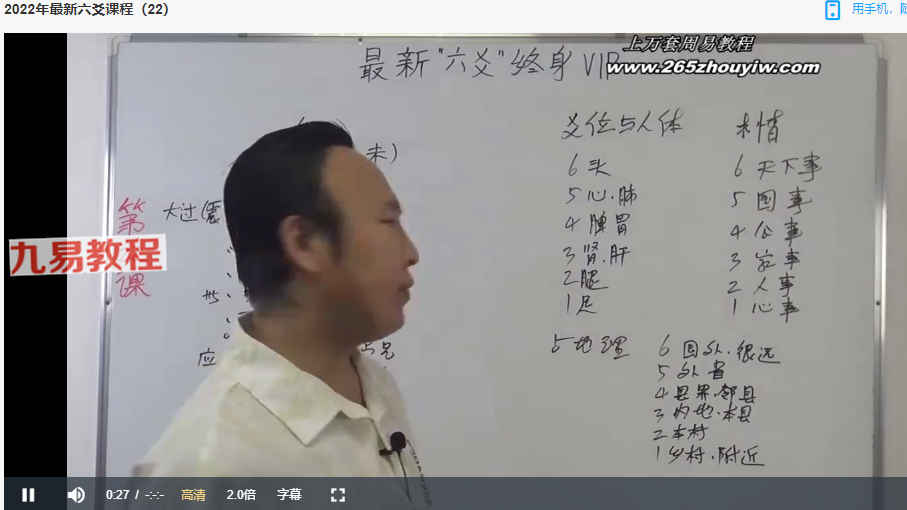 2022年最新六爻课程（22）
用手机，随
上万套周易教程
www.265zhouyiw.com
最新"六爻"终身VIP
九易教程
第
课
未)
大过(震
世、
应
爻位与人体
6 头
5 心.肺
4 脾胃
3 肾.肝
2 腿
1 足
6 天下事
5 国事
4 公事
3 家事
2 人事
1 心事
与地理
6 国外.很远
5 外省
4 县界.邻县
3 内地.本县
2 本村
1 乡村.附近
0:27 / -:-:-
高清
2.0倍
字幕